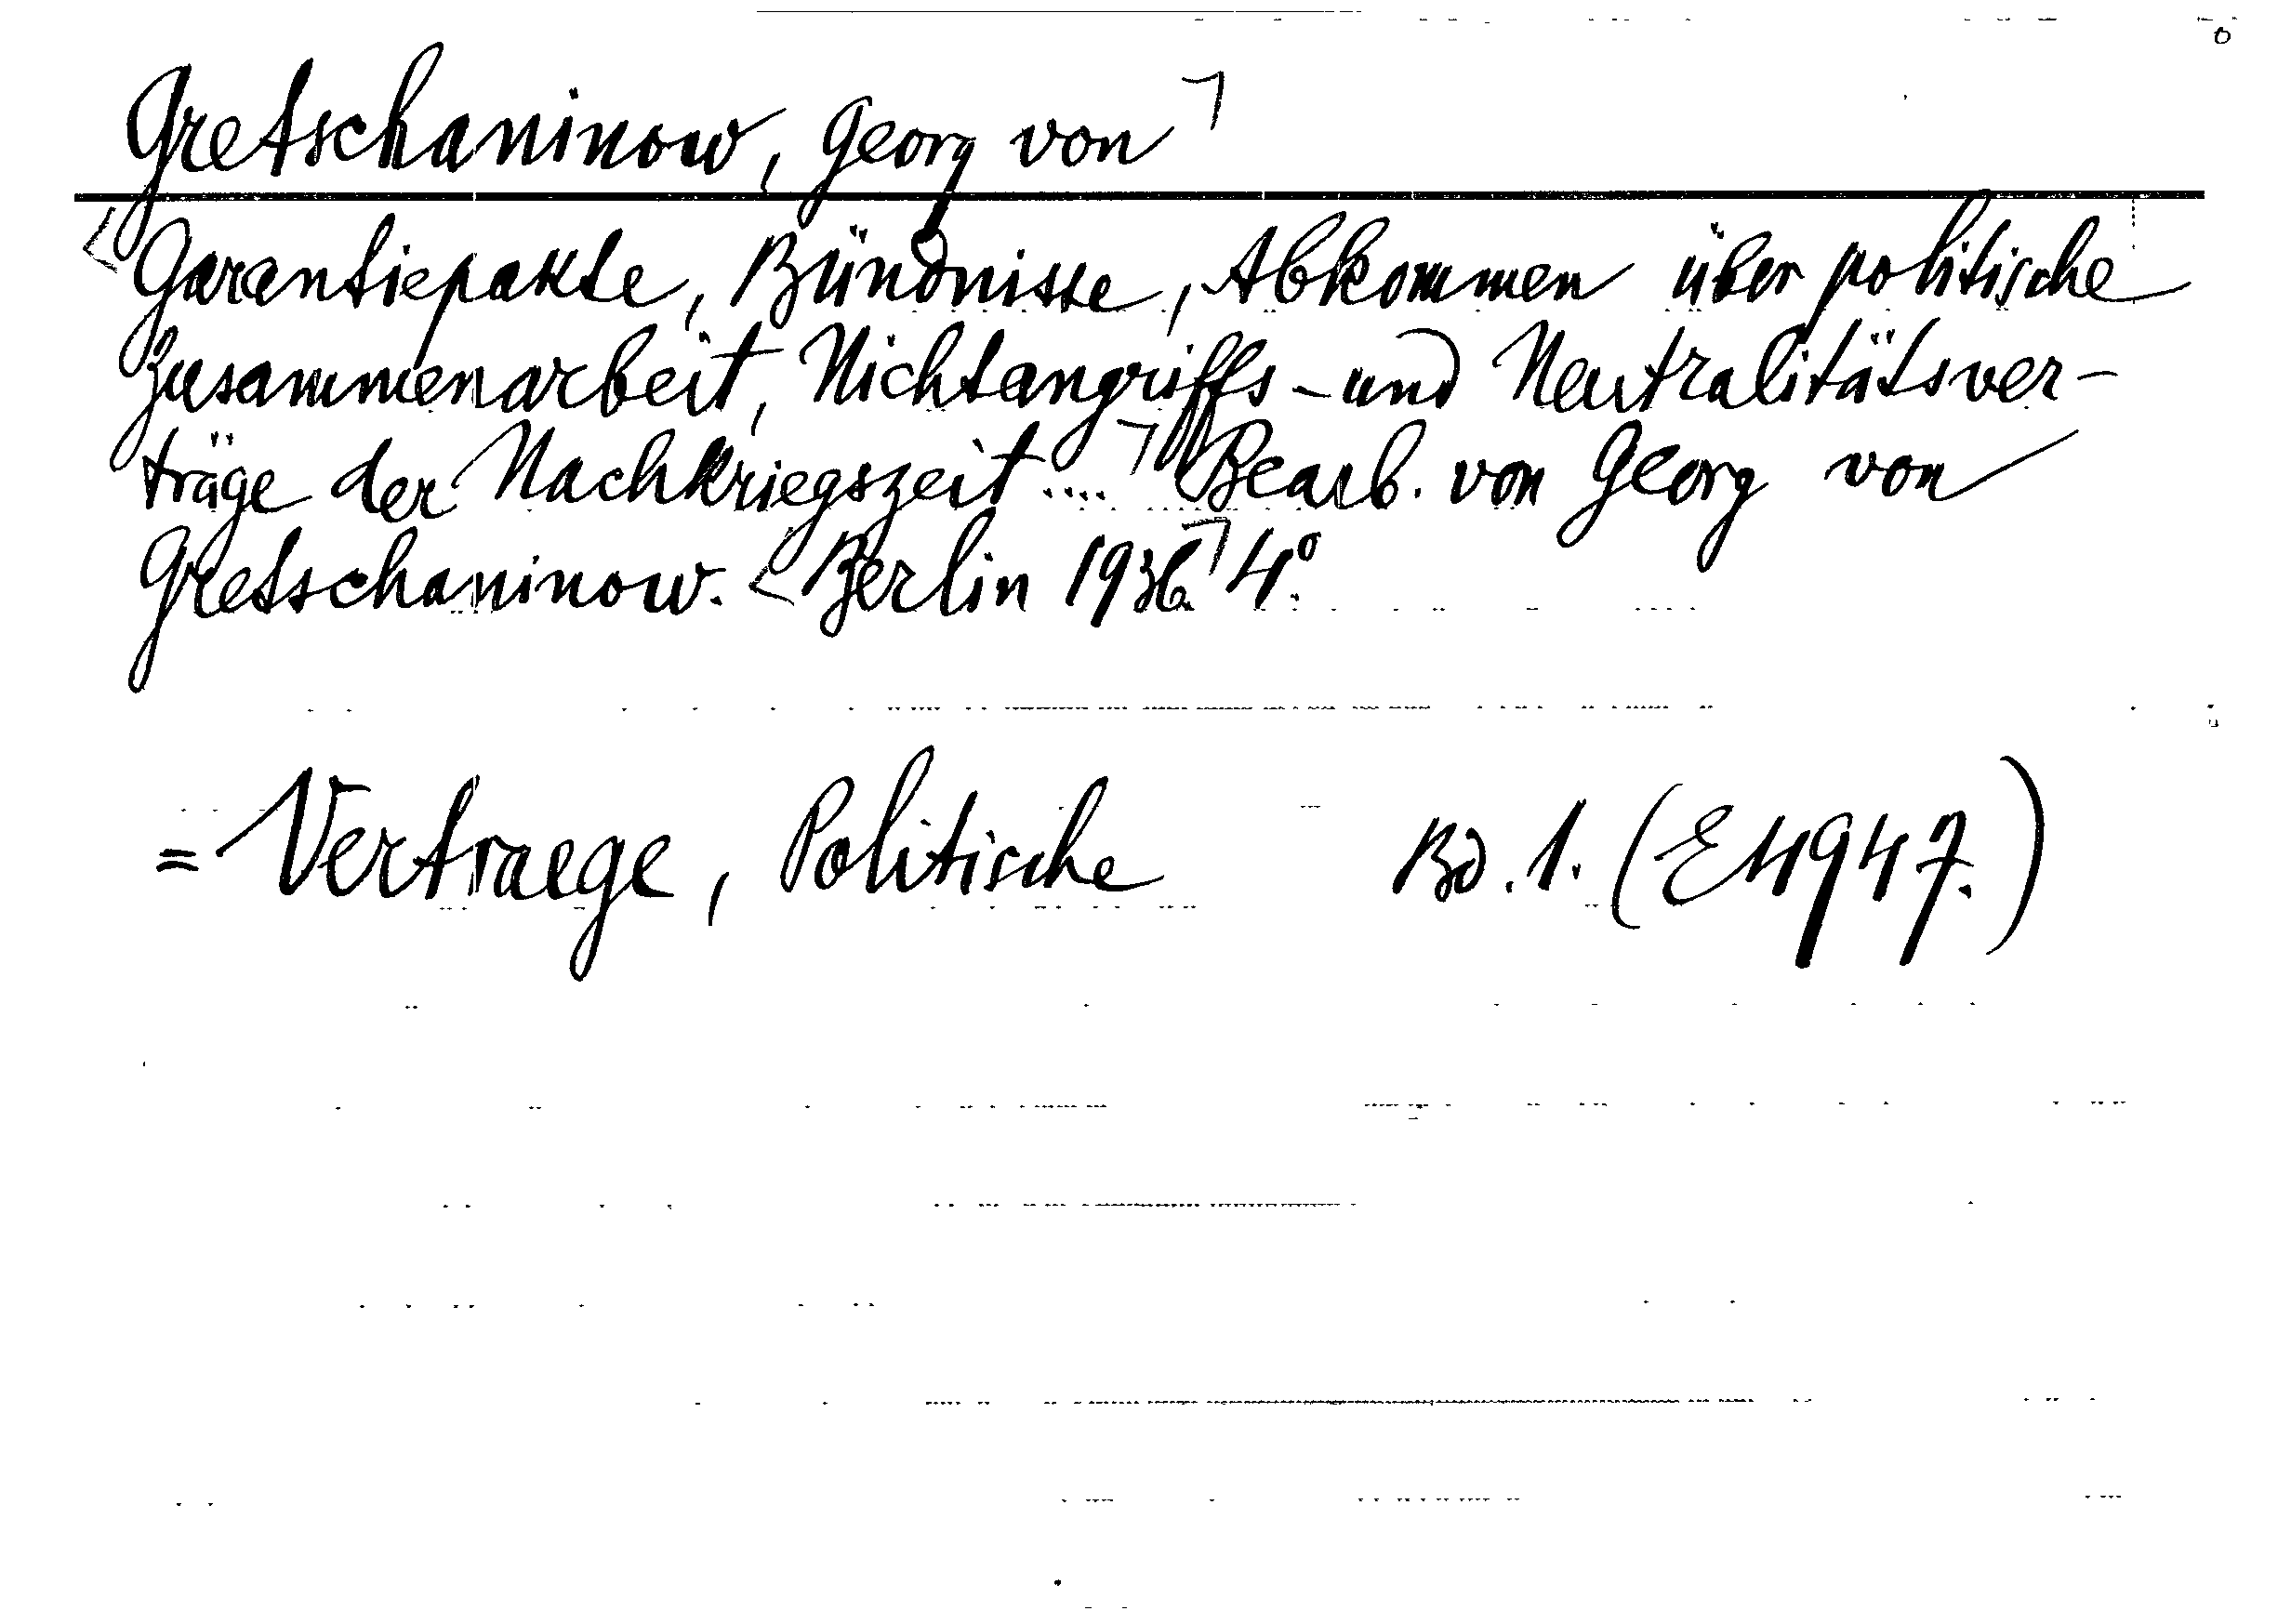 Gretschaninow, Georg von
Garantiepakte, Bündnisse, Abkommen über politische
Zusammenarbeit, Nichtangriffs- und Neutralitätsver-
träge der Nachkriegszeit.... Bearb. von Georg von
Gretschaninow. Berlin 1936. 4°.
= Vertraege, Politische Bd. 1. (E4947.)